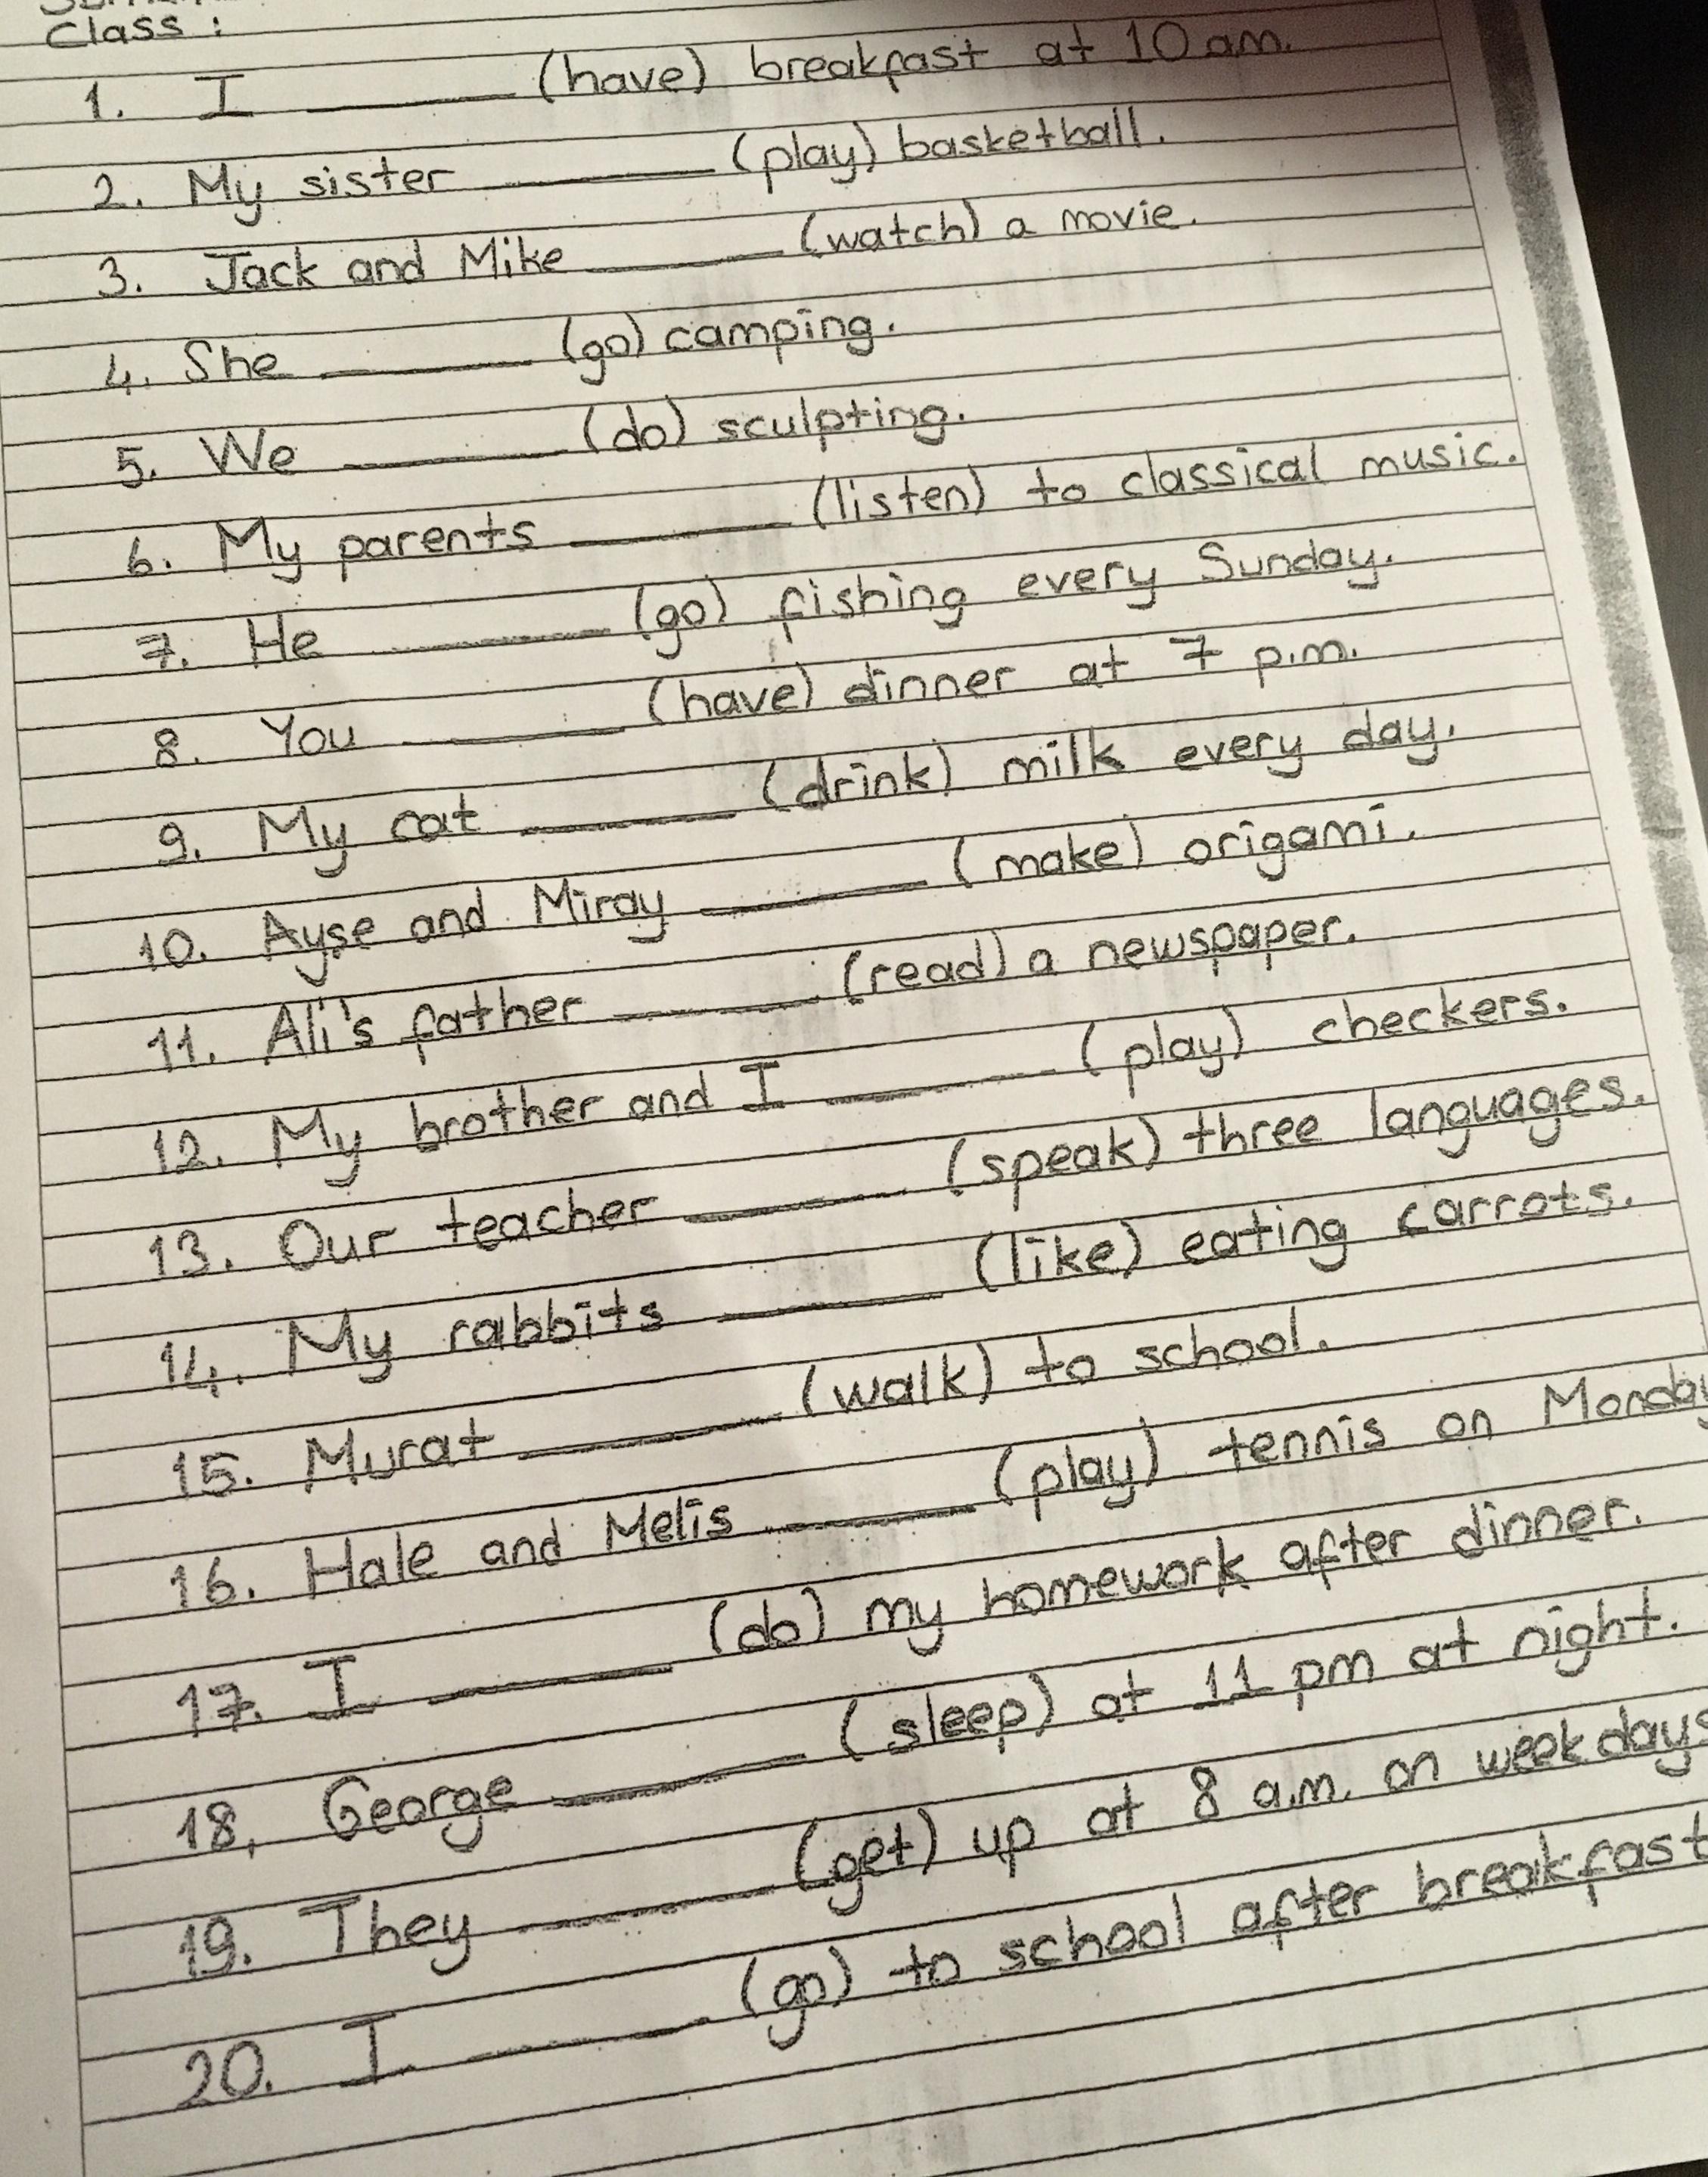 Class :
1. I ______ (have) breakfast at 10 am.
2. My sister ______ (play) basketball.
3. Jack and Mike ______ (watch) a movie.
4. She ______ (go) camping.
5. We ______ (do) sculpting.
6. My parents ______ (listen) to classical music.
7. He ______ (go) fishing every Sunday.
8. You ______ (have) dinner at 7 p.m.
9. My cat ______ (drink) milk every day.
10. Ayse and Miray ______ (make) origami.
11. Ali's father ______ (read) a newspaper.
12. My brother and I ______ (play) checkers.
13. Our teacher ______ (speak) three languages.
14. My rabbits ______ (like) eating carrots.
15. Murat ______ (walk) to school.
16. Hale and Melis ______ (play) tennis on Monday
17. I ______ (do) my homework after dinner.
18. George ______ (sleep) at 11 pm at night.
19. They ______ (get) up at 8 a.m. on weekdays
20. I ______ (go) to school after breakfast